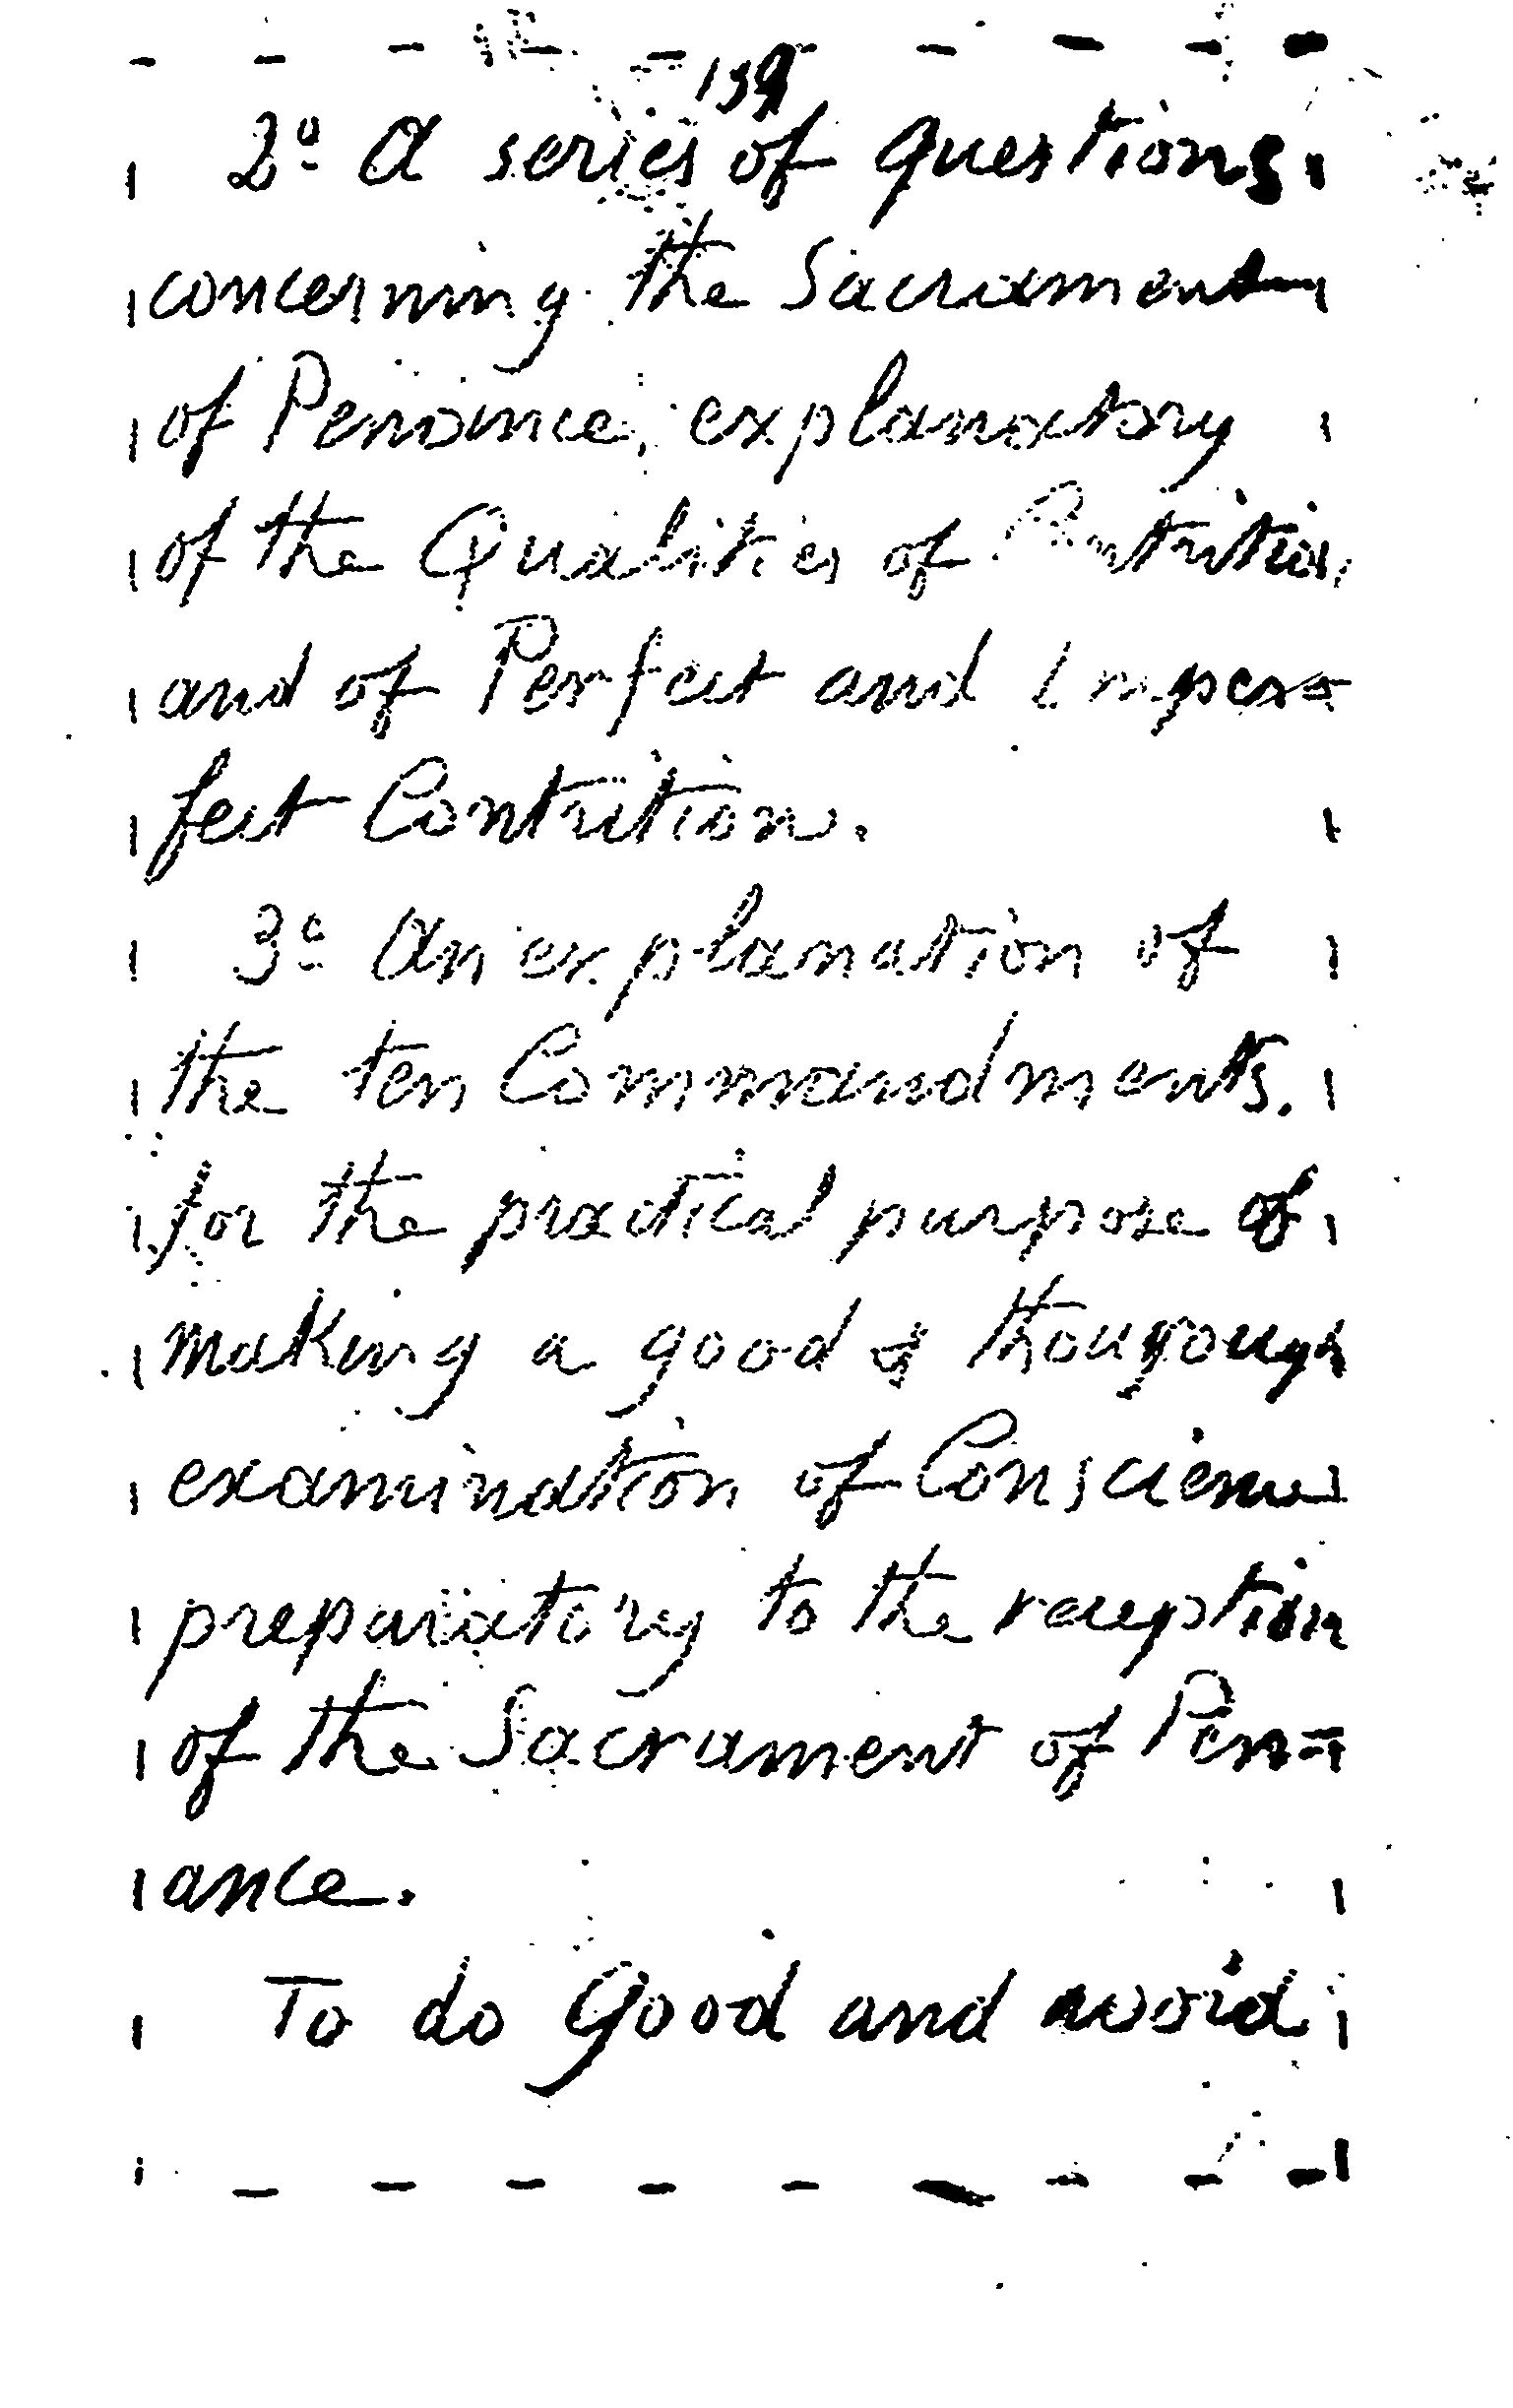 139
2º A series of questions
concerning the Sacrament
of Penance, explanatory
of the Qualities of Contrition
and of Perfect and Imper=
fect Contrition.
3º An explanation of
the ten Commandments.
for the practical purpose of
making a good & thourough
examination of Conscience
preparatory to the reception
of the Sacrament of Pen=
ance.
To do Good and avoid